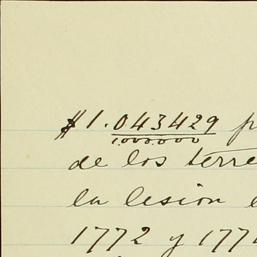 $1.043429
1,000.000
de los
la lesion
1772 y 177